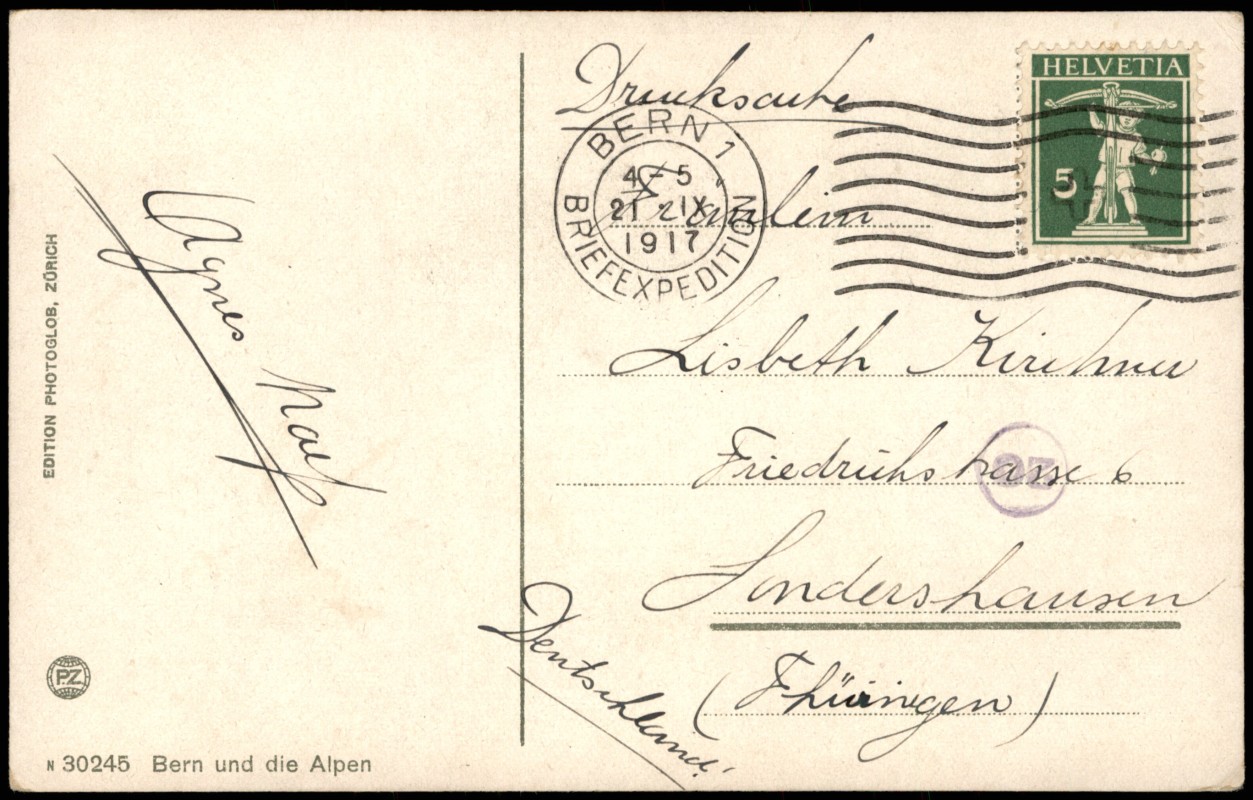 EDITION PHOTOGLOB, ZÜRICH
Agnes Naef
P.Z.
N 30245 Bern und die Alpen
Drucksache
HELVETIA
5
BERN 1
4-5
21. IX
1917
BRIEFEXPEDITION
Fräulein
Lisbeth Kirchner
Friedrichstrasse 6
Sondershausen
(Thüringen)
Deutschland.